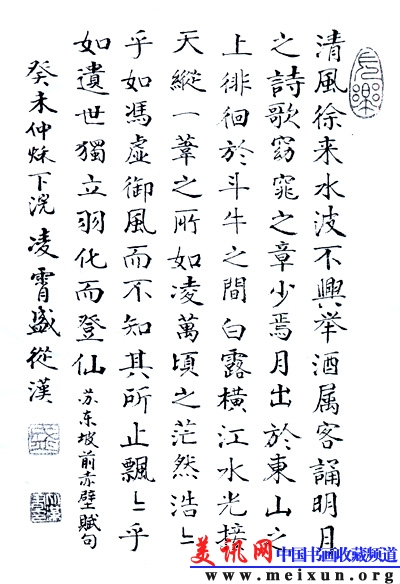 清風徐来水波不興举酒属客誦明月
之詩歌窈窕之章少焉月出於東山之
上徘徊於斗牛之間白露橫江水光接
天縱一葦之所如凌萬頃之茫然浩〻
乎如馮虛御風而不知其所止飄〻乎
如遺世獨立羽化而登仙 苏东坡前赤壁賦句
癸未仲秌下浣凌霄盛從漢
美讯网 中国书画收藏频道
www.meixun.org